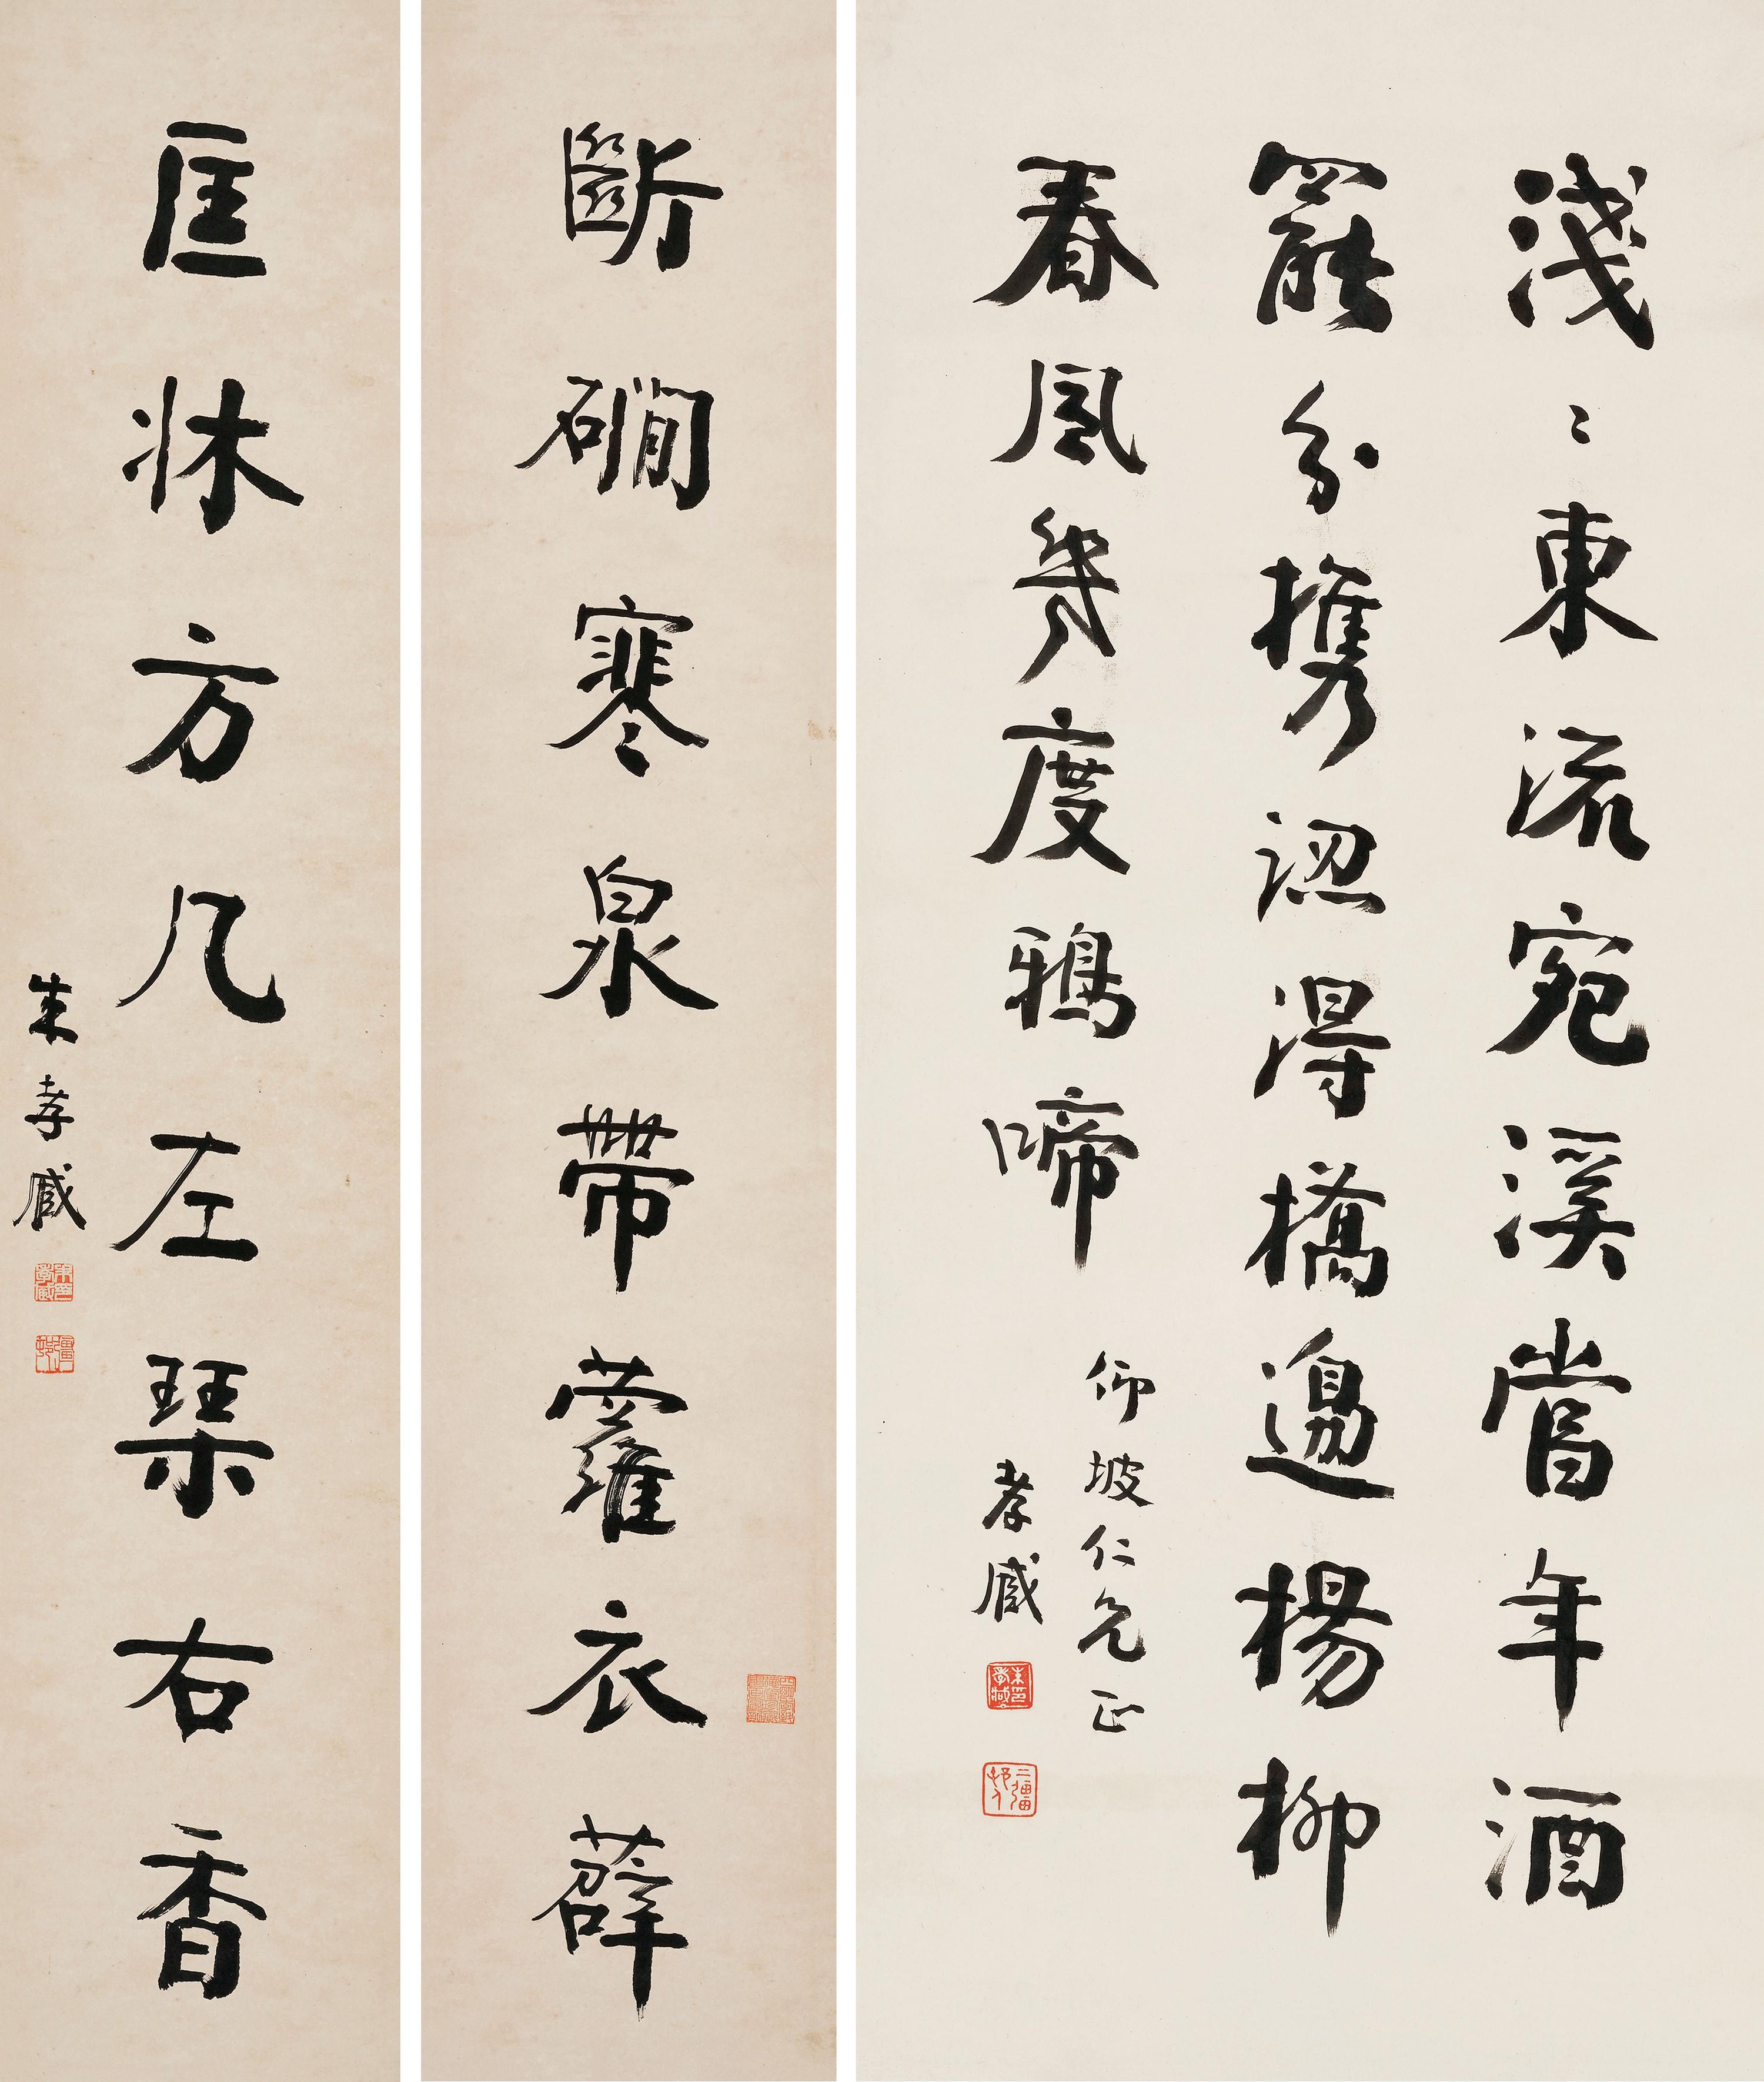 淺〻東流宛溪當年酒
罷分攜認得橋邊楊柳
春風幾度鴉啼
仰坡仁兄正
孝臧
斷磵寒泉帶蘿衣薜
匡牀方几左琴右香
朱孝臧